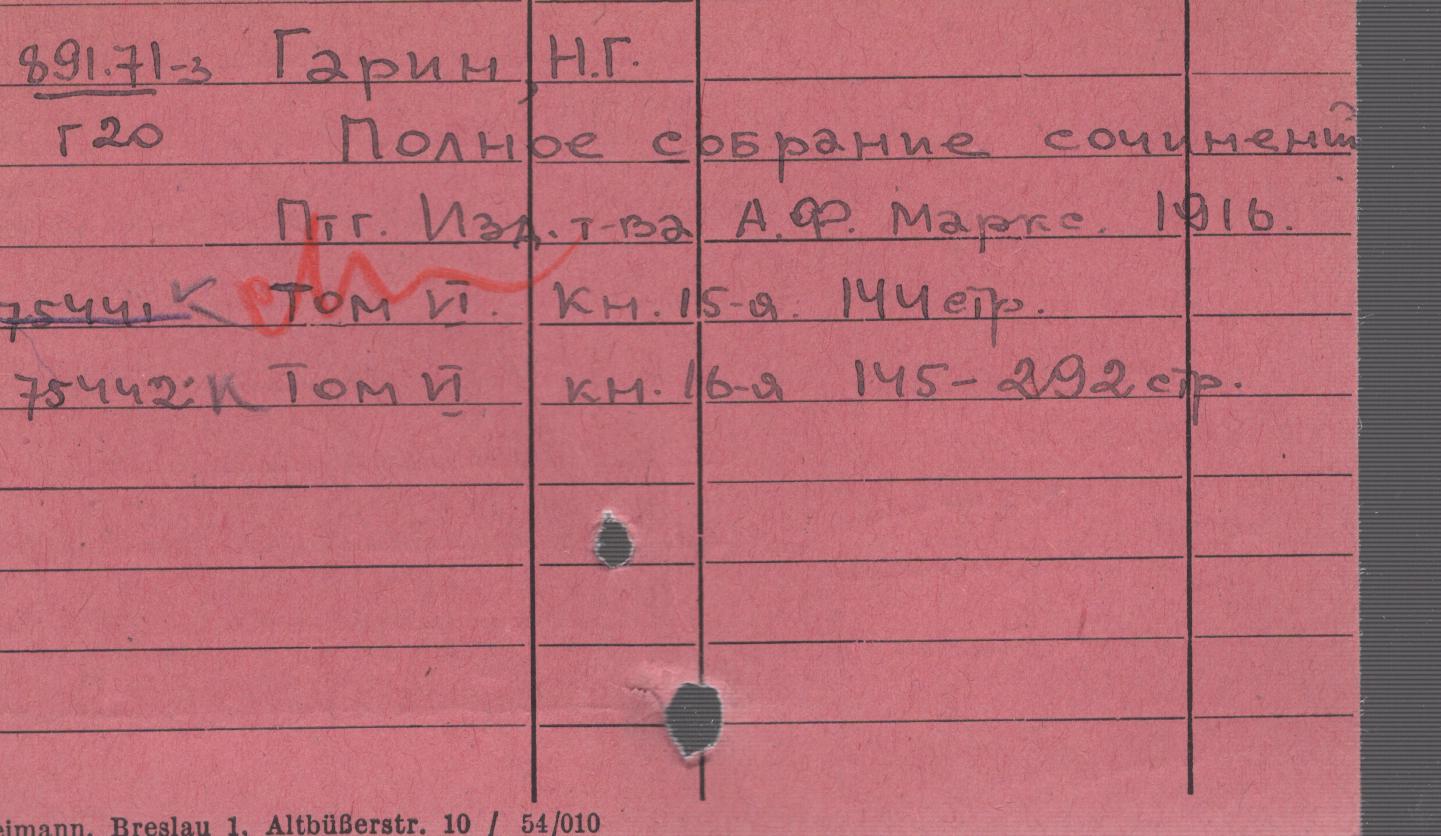 891.71-3 Гарин, Н.Г.
г20 Полное собрание сочинений
Птг. Изд. т-ва А.Ф. Маркс. 1916.
75441 К Том VI. кн. 15-я. 144 стр.
75442: К Том VI кн. 16-я 145-292 стр.
eimann, Breslau 1, Altbüßerstr. 10 / 54/010